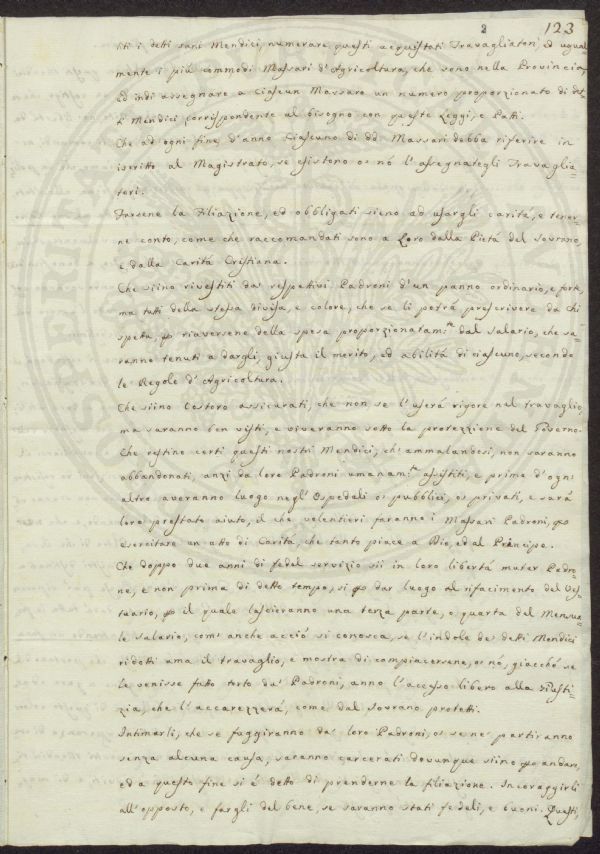 2 123
titi i detti sani Mendici, numerare questi acquistati Travagliatori, ed ugual
mente i più commodi Massari d'Agricoltura, che sono nella Provincia,
ed indi assegnare a ciascun Massaro un numero proporzionato di det
ti Mendici corrispondente al bisogno con queste Leggi, e Patti.
Che ad ogni fine d'anno ciascuno di dd. Massari debba riferire in
iscritto al Magistrato, se esistono o' nò l'assegnategli Travaglia=
tori.
Farsene la Filiazione, ed obbligati sieno ad usargli carità, e tener=
ne conto, come che raccomandati sono a Loro dalla Pietà del Sovrano,
e dalla Carità Cristiana.
Che siino rivestiti da' respettivi Padroni d'un panno ordinario, e forte,
ma tutti della stessa divisa, e colore, che se li potrà prescrivere da chi
spetta, per riaversene della spesa proporzionatam.te dal salario, che sa=
ranno tenuti a dargli, giusta il merito, ed abilità di ciascuno, secondo
le Regole d'Agricoltura.
Che siino Costoro assicurati, che non se l'userà rigore nel travaglio,
ma saranno ben visti, e viveranno sotto la protezzione del Governo.
Che restino certi questi nostri Mendici, ch'ammalandosi, non saranno
abbandonati, anzi da loro Padroni umanam.te assistiti, e prima d'ogn'
altro averanno luogo negl'Ospedali o' pubblici, o' privati, e sarà
loro prestato aiuto, il che volentieri faranno i Massari Padroni, per
esercitare un atto di Carità, che tanto piace a Dio, ed al Principe.
Che doppo due anni di fedel servizio sii in loro libertà mutar Padro=
ne, e non prima di detto tempo, sì per dar luogo al rifacimento del Ves
tuario, per il quale lascieranno una terza parte, o quarta del Mensua=
le salario, com'anche acciò si conosca, se l'indole de' detti Mendici
ridotti ama il travaglio, e mostra di compiacersene, o' nò, giacchè se
le venisse fatto torto da' Padroni, anno l'accesso libero alla Giusti=
zia, che l'accarezzerà, come dal Sovrano protetti.
Intimarli, che se fuggiranno da' loro Padroni, o' se ne partiranno
senza alcuna causa, saranno carcerati dovunque siino per andare,
ed a questo fine si è detto di prenderne la filiazione. Incoraggirli
all'opposto, e fargli del bene, se saranno stati fedeli, e buoni. Questi,